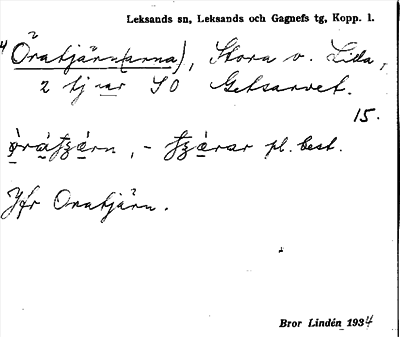 Leksands sn, Leksands och Gagnefs tg, Kopp. l.
Öratjärn(arna), Stora o. Lilla,
2 tj-ar SO Getsarvet.
15.
, - pl. best.
Jfr Oratjärn.
Bror Lindén 1934